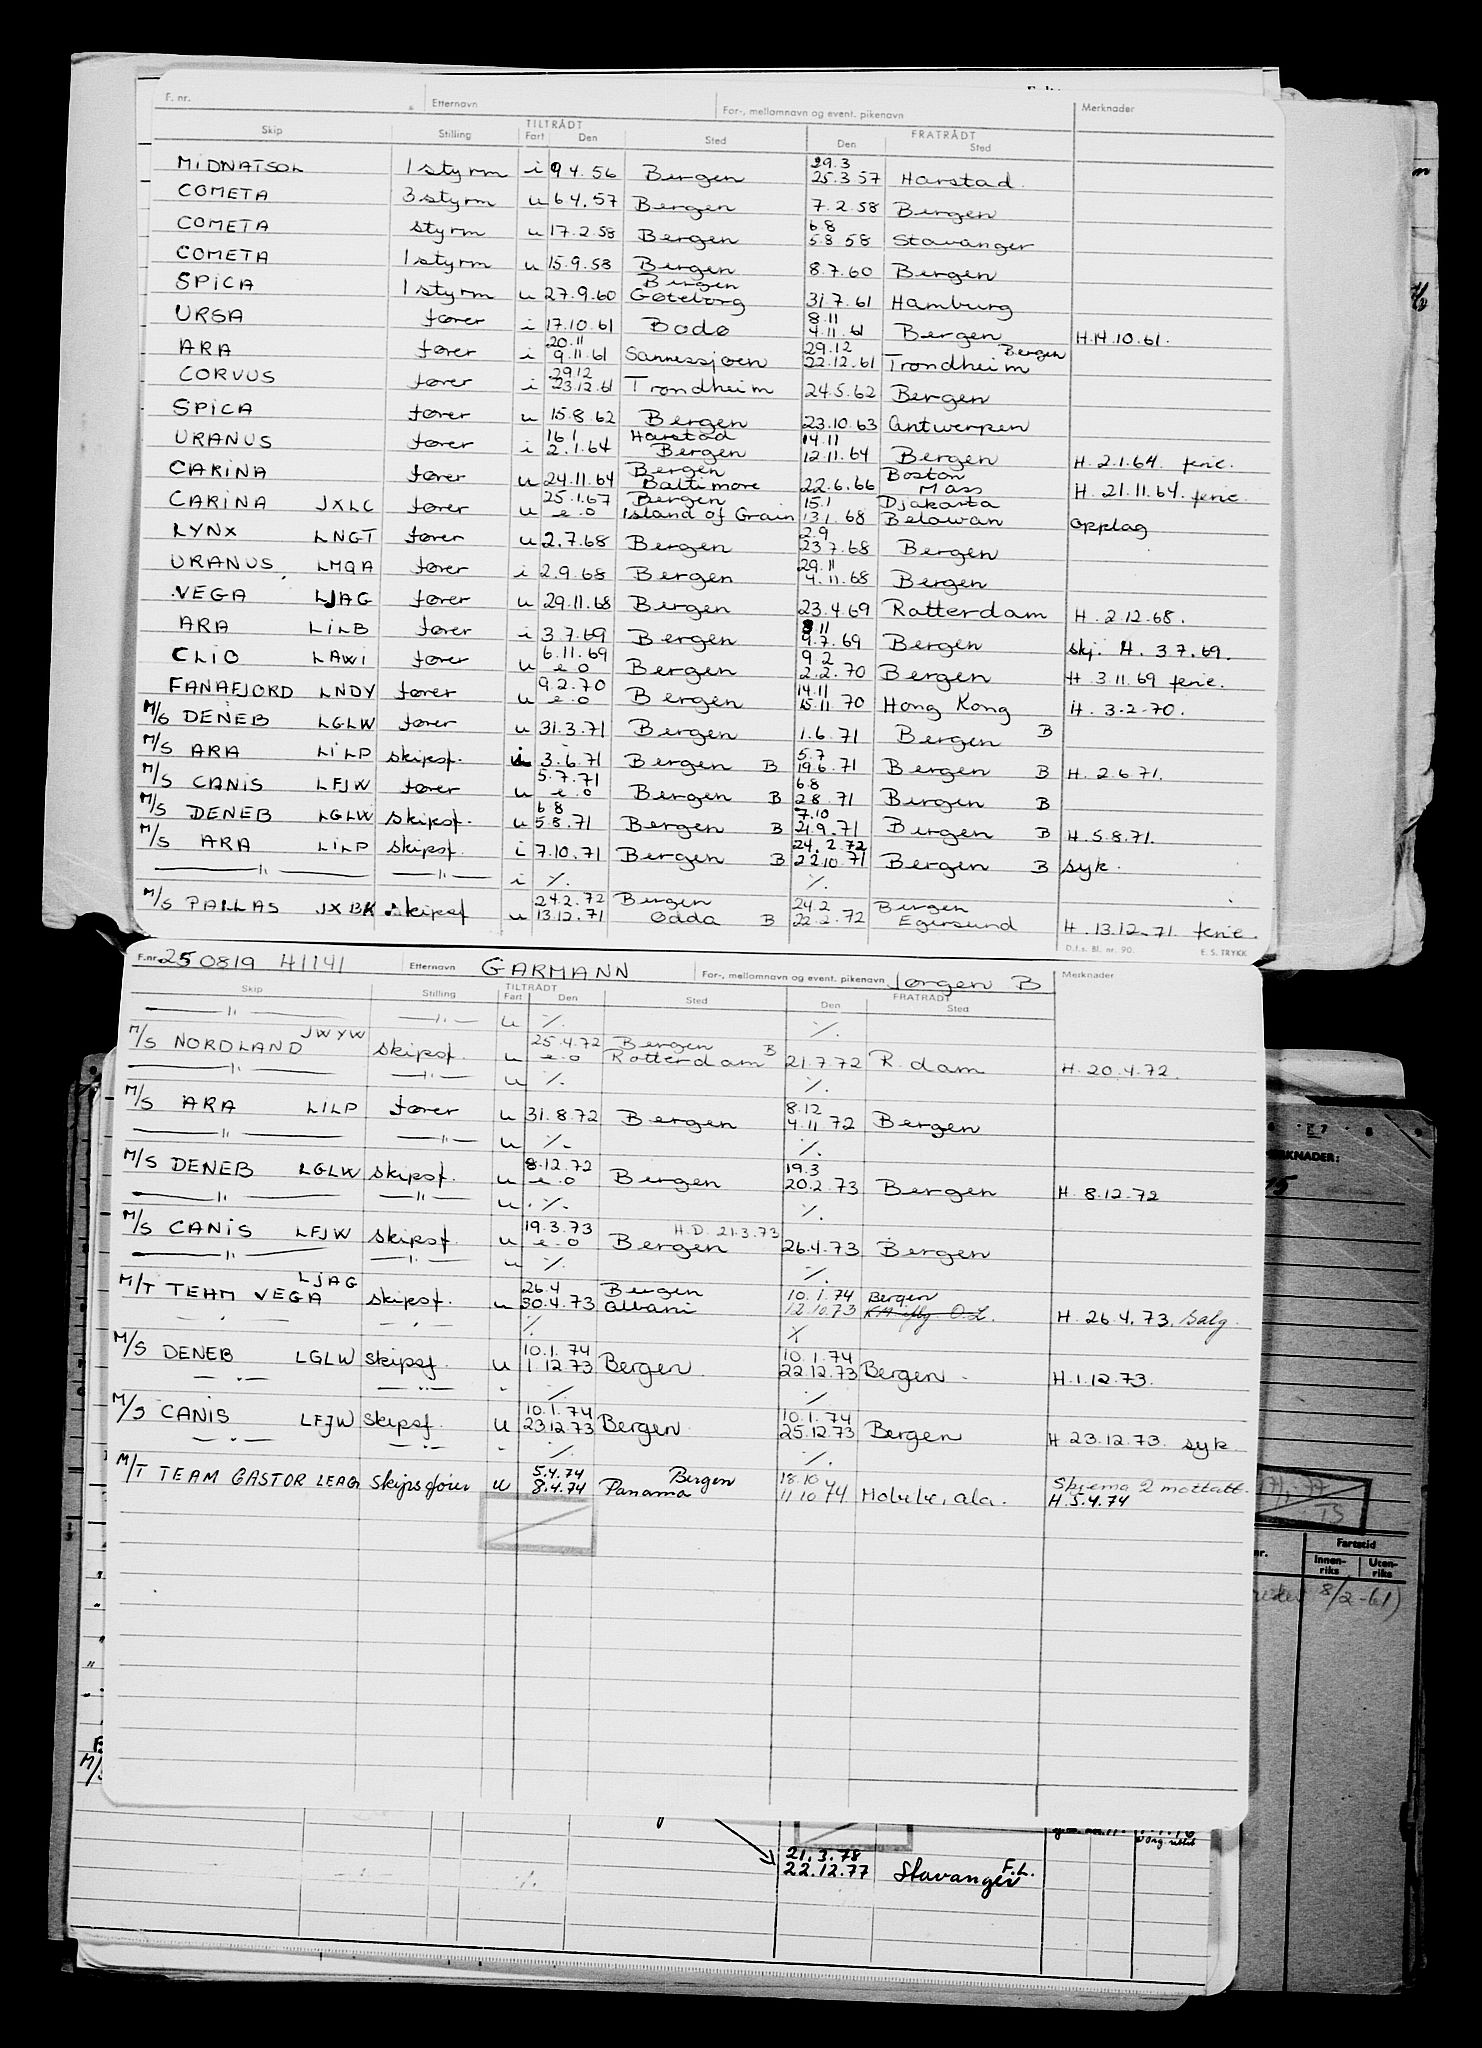 F. nr. Etternavn For-, mellomnavn og event. pikenavn Merknader
TILTRÅDT FRATRÅDT
Skip Stilling Fart Den Sted Den Sted
29.3
MIDNATSOL 1 styrm i 9 4.56 Bergen 25.3 57 Harstad
COMETA 3 styrm u 6 4.57 Bergen 7.2.58 Bergen
6.8
COMETA styrm u 17.2.58 Bergen 5.8 58 Stavanger
COMETA 1 styrm u 15.9.58 Bergen 8.7.60 Bergen
Bergen
SPICA 1 styrm u 27.9.60 Gøteborg 31.7.61 Hamburg
8.11
URSA fører i 17.10.61 Bodø 4.11.61 Bergen H.14.10.61.
20.11 29.12 Bergen
ARA fører i 9.11.61 Sannessjøen 22.12.61 Trondheim
29.12
CORVUS fører i 23.12.61 Trondheim 24.5.62 Bergen
SPICA fører u 15.8.62 Bergen 23.10.63 Antwerpen
16.1 Harstad 14.11
URANUS fører i 2.1.64 Bergen 12.11.64 Bergen H. 2.1.64. ferie.
Bergen Boston
CARINA fører u 24.11.64 Baltimore 22.6.66 Mass H. 21.11.64. ferie
25.1.67 Bergen 15.1 Djakarta
CARINA JXLC fører u e.o Island of Grain 13.1.68 Belawan Opplag
2.9
LYNX LNGT fører u 2.7.68 Bergen 23 7.68 Bergen
29.11
URANUS LMQA fører i 2.9.68 Bergen 4.11.68 Bergen
VEGA LJAG fører u 29.11.68 Bergen 23.4.69 Rotterdam H. 2.12.68.
11
ARA LILB fører i 3.7.69 Bergen 9.7.69 Bergen skj. H. 3 7.69.
6.11.69 9 2
CLIO LAWI fører u e o Bergen 2.2.70 Bergen H. 3.11.69 ferie.
9.2.70 14.11
FANAFJORD LNDY fører u e.o Bergen 15.11 70 Hong Kong H. 3-2-70.
M/S DENEB LGLW fører u 31.3.71 Bergen 1.6.71 Bergen B
5.7
M/S ARA LILP skipsf. i 3.6.71 Bergen B 19.6.71 Bergen B H. 2.6.71.
5.7.71 6.8
M/S CANIS LFJW fører u e.o Bergen B 2.8.71 Bergen B
6 8 7.10
M/S DENEB LGLW skipsf. u 5.8.71 Bergen B 21.9.71 Bergen B H.5.8.71.
24.2.72
M/S ARA LILP skipsf. i 7.10.71 Bergen B 22.10.71 Bergen B syk.
—"— —"— i %. %.
24.2.72 Bergen 24.2 Bergen
M/S PALLAS JXBK skipsf u 13.12.71 Odda B 22.2.72 Egersund H. 13.12.71 ferie
D.f.s. Bl. nr. 90. E. S. TRYKK
F.nr. 250819 41141 Etternavn GARMANN For-, mellomnavn og event. pikenavn Jørgen B Merknader
TILTRÅDT FRATRÅDT
Skip Stilling Fart Den Sted Den Sted
—"— —"— u %. %.
JWYW 25.4.72 Bergen B
M/S NORDLAND skipsf. u e.o Rotterdam 21.7.72 R.dam H. 20.4.72.
—"— —"— u %. %.
8.12
M/S ARA LILP fører u 31.8.72 Bergen 4.11 72 Bergen
—"— —"— u %. %.
8.12.72 19.3
M/S DENEB LGLW skipsf. u e.o Bergen 20.2.73 Bergen H. 8.12.72
—"— —"— u %. %.
19.3.73 H.D. 21.3.73
M/S CANIS LFJW skipsf. u e.o Bergen 26.4.73 Bergen
—"— —"— u %. %.
LJAG 26.4 Bergen 10.1.74 Bergen
M/T TEAM VEGA skipsf. u 30.4.73 12.10.73 H. 26.4.73. Salg.
— " — — " — %. %
10.1.74 10.1.74
M/S DENEB LGLW skipsf. u 1.12.73 Bergen 22.12.73 Bergen H.1.12.73.
— " — — " — %. %.
10.1.74 10.1.74
M/S CANIS LFJW skipsf u 23.12.73 Bergen 25.12.73 Bergen H 23.12.73. syk
— " — — " — %. %.
5.4.74 Bergen 18.10 Skjema 2 mottatt.
M/T TEAM GASTOR LEAG Skipsfører u 8.4.74 Panama 11 10 74 Mobile, Ala. H.5.4.74
MERKNADER:
Fartstid
Innen-riks Uten-riks
8/2-61)
21.3.78
22.12.77 Stavanger F.L.